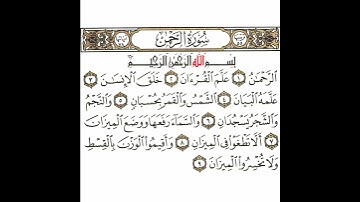 سُورَةُ الرَّحْمَٰن
بِسْمِ اللَّهِ الرَّحْمَٰنِ الرَّحِيمِ
الرَّحْمَٰنُ ١ عَلَّمَ الْقُرْءَانَ ٢ خَلَقَ الْإِنسَانَ ٣
عَلَّمَهُ الْبَيَانَ ٤ الشَّمْسُ وَالْقَمَرُ بِحُسْبَانٍ ٥ وَالنَّجْمُ
وَالشَّجَرُ يَسْجُدَانِ ٦ وَالسَّمَاءَ رَفَعَهَا وَوَضَعَ الْمِيزَانَ
٧ أَلَّا تَطْغَوْا فِي الْمِيزَانِ ٨ وَأَقِيمُوا الْوَزْنَ بِالْقِسْطِ
وَلَا تُخْسِرُوا الْمِيزَانَ ٩